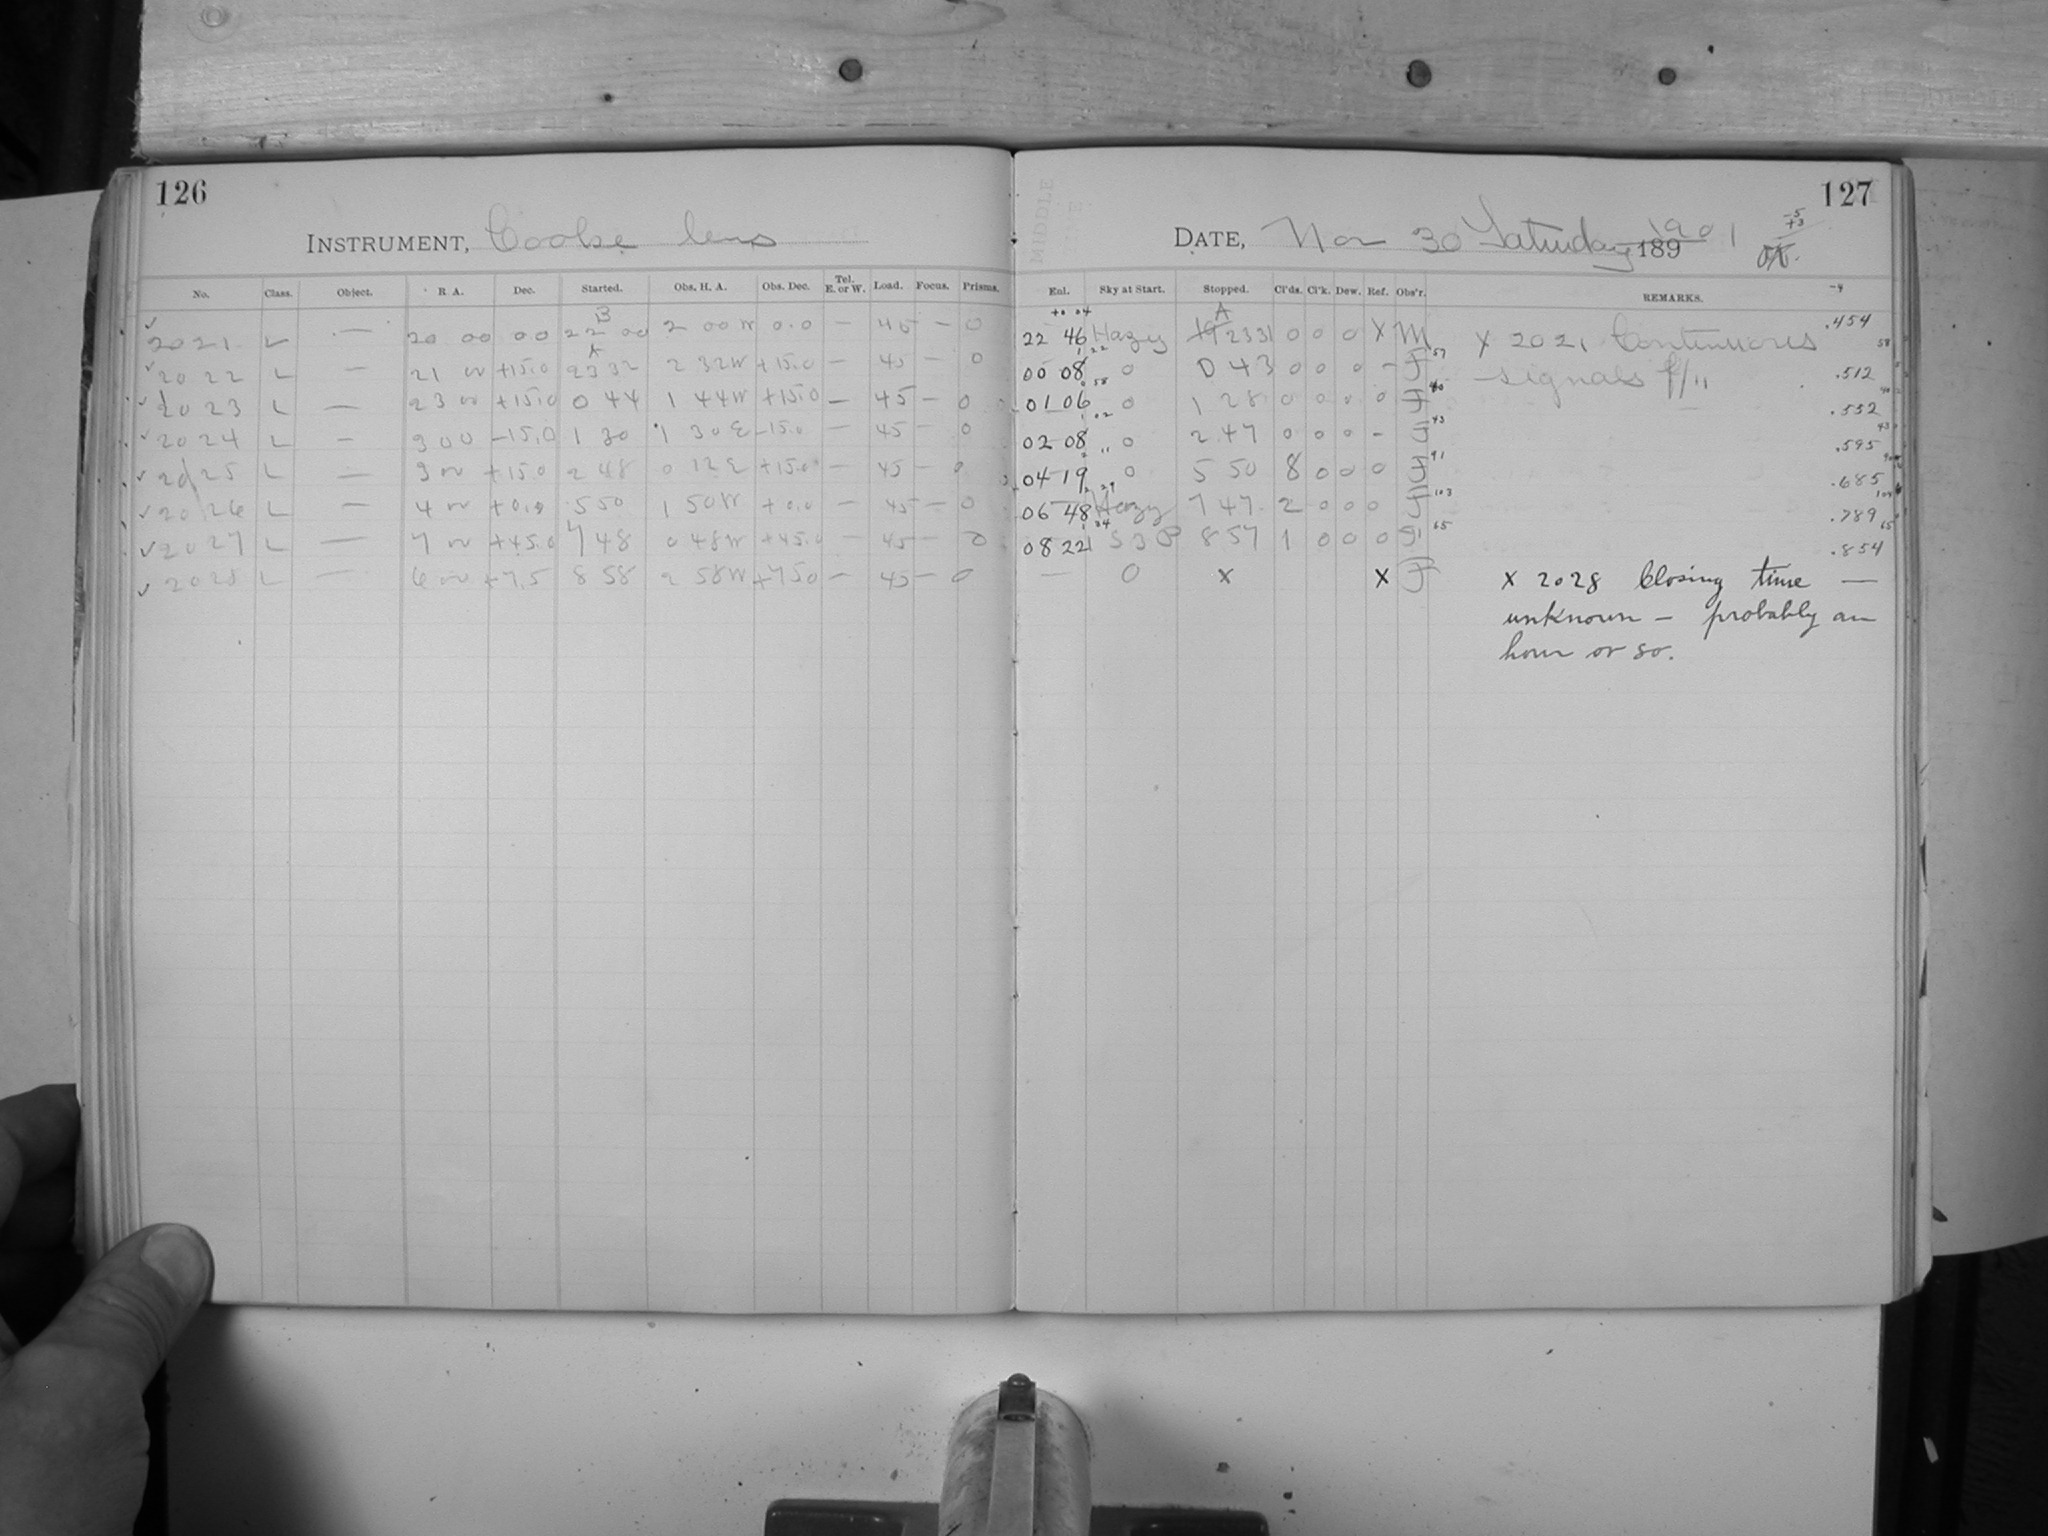 126
127
INSTRUMENT, Cooke lens
DATE, Nov 30 Saturday 1901 189
-5
+3
OK.
No. Class. Object. R. A. Dec. Started. Obs. H. A. Obs. Dec. Tel. E. or W. Load. Focus. Prisms. Enl. Sky at Start. Stopped. Cl'ds. Cl'k. Dew. Ref. Obs'r. REMARKS.
2021 L — 20 00 00 B 22 00 2 00 W 0.0 — 45 — 0 22 46 Hazy A 23 31 0 0 0 X M X 2021 Continuous .454
2022 L — 21 00 +15.0 A 23 32 2 32 W +15.0 — 45 0 00 08 0 0 43 0 0 0 — J 57 signals f/11 .512
2023 L — 23 00 +15.0 0 44 1 44 W +15.0 — 45 — 0 01 06 0 1 28 0 0 0 0 J 40 .552
2024 L — 3 00 -15.0 1 30 1 30 E -15.0 — 45 — 0 02 08 0 2 47 0 0 0 - J 43 .595
2025 L — 3 00 +15.0 2 48 0 12 E +15.0 — 45 — 0 04 19 0 5 50 8 0 0 0 J 91 .685
2026 L — 4 00 +0.0 5 50 1 50 W +0.0 — 45 — 0 06 48 Hazy 7 47 2 0 0 0 J 103 .789
2027 L — 7 00 +45.0 7 48 0 48 W +45.0 — 45 — 0 08 22 8 57 1 0 0 0 J 65 .854
2028 L — 6 00 +7.5 8 58 2 58 W +7.50 — 45 — 0 — 0 X X J X 2028 Closing time —
unknown — probably an
hour or so.